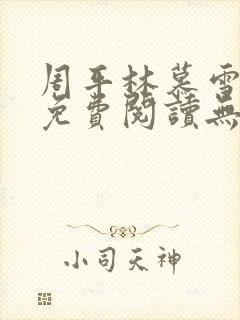 周平林慕雪
免費閱讀無
小司天神